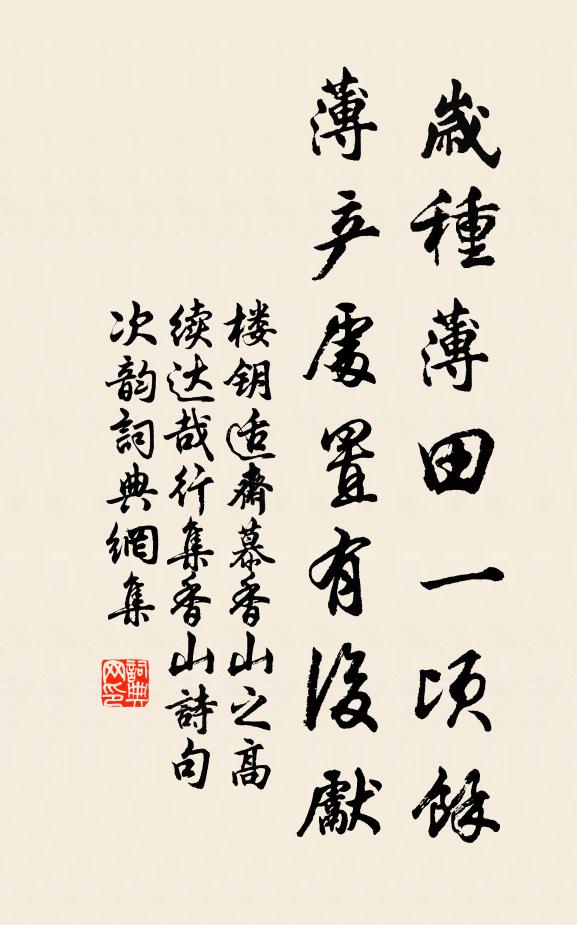 歲種薄田一頃餘
薄产處置有後獻
楼钥适齋慕香山之高
续达哉行集香山詩句
次韵詞典網集
詞典网印